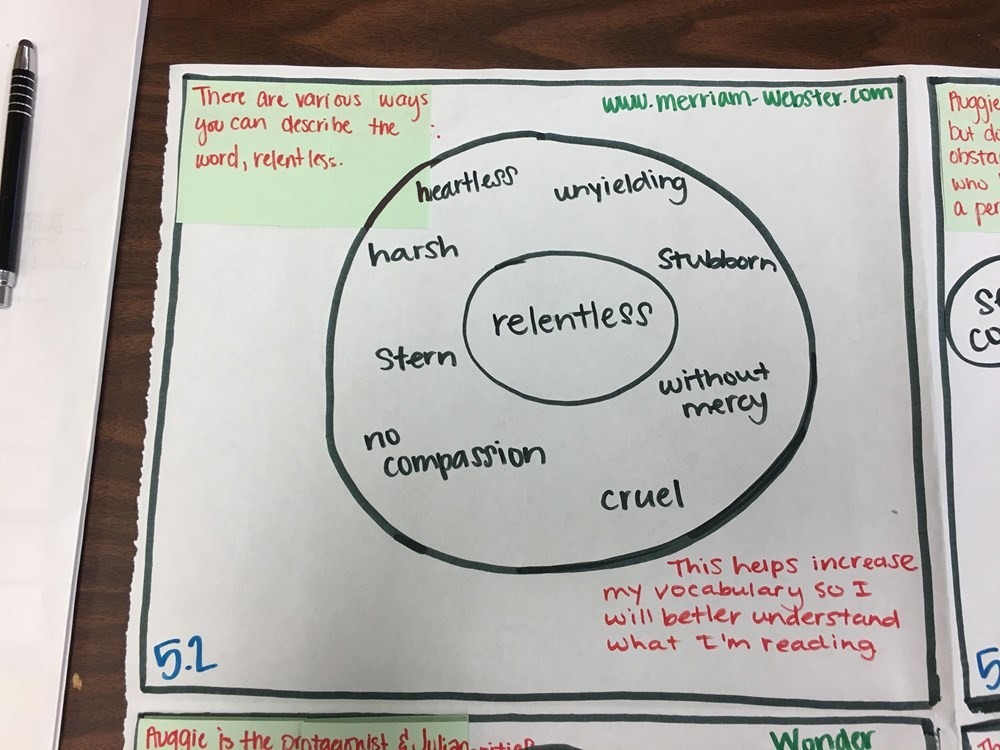 There are various ways
you can describe the
word, relentless.
www.merriam-webster.com
heartless
unyielding
harsh
stubborn
relentless
stern
without
mercy
no
compassion
cruel
This helps increase
my vocabulary so I
will better understand
what I'm reading
5.2
Auggie
but
who
a
Auggie is the protagonist & Julian
Wonder